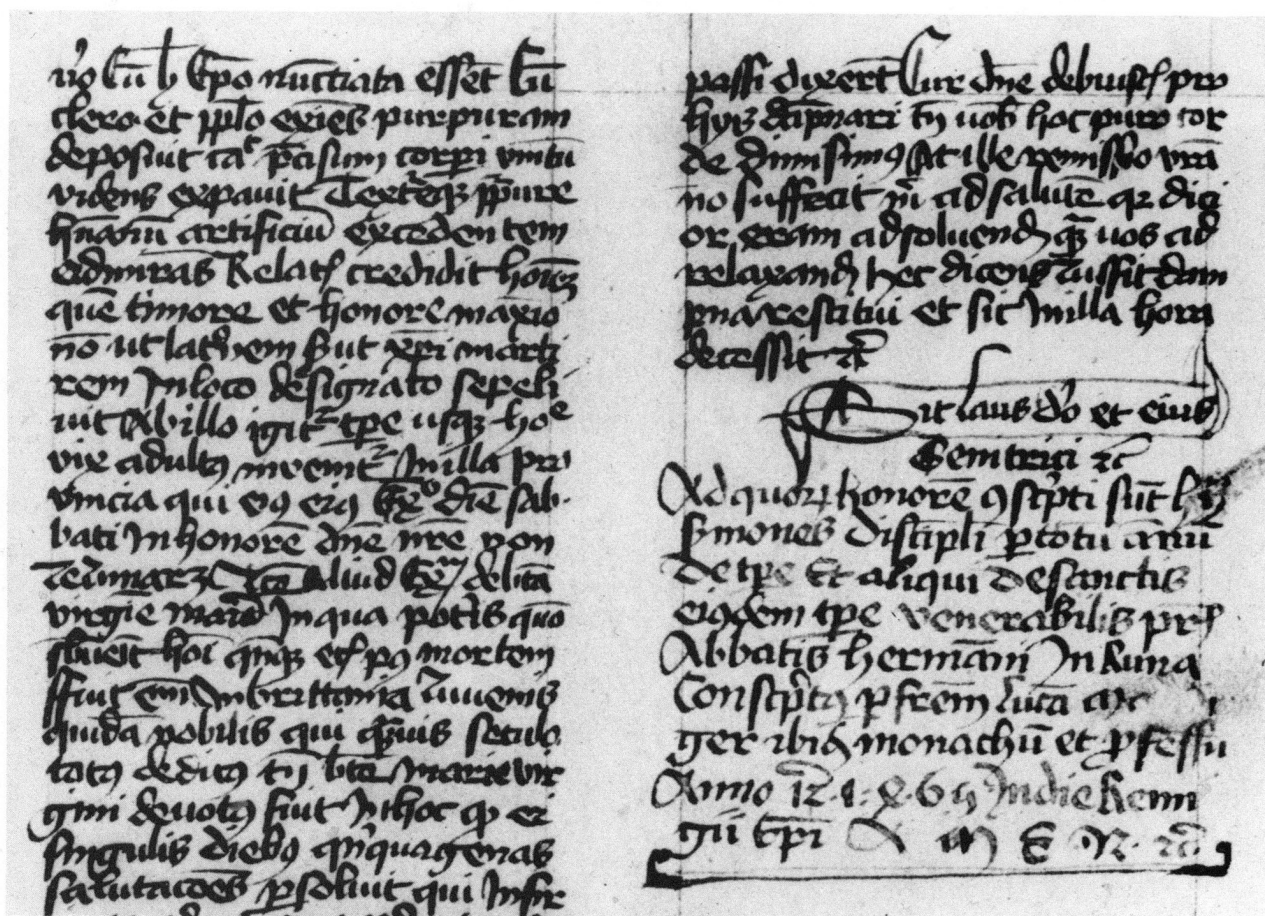 v̓o Cū h Ep̄o nūctiata essēt Cū
clero et pp̄lo exiēs purpuram
deposuit p̄cisum corp̄i vnitū
videns expauit p̄pure
hūanū artificiū excedentem
admirās Relat̄ credidit
quē timore et honore maxīo
nō ut lat̓nem s̄ut xp̄i marti
rem In loco designato sepeli
uit Ab illo igit̄ tp̄e usq̄ ho͑
vix adult9 inuenit̄ In illa pro
vincia qui diē sab
bati In honorē dn̄e nr̄e non
Ie̓unaret aliud Ex̄m de btā
virgīe maria In qua pot̓is quō
sb̓ueīt hoī q̄nq̄ et̄ p9 mortem
ffuit eī In brittania Iuuenis
quidā nobilis qui q̄uis seculo
tot9 dedit9 tn̄ btē Marie vir
gini deuot9 fuit In hoc qd ei
singulis dieb9 q̄nquagenas
salutacōes p̄soluit qui Infir
passi dixer̄t Cur dn̄e debuist̄ pro
hijs dāpnari tn̄ uob̄ hoc puro cor
de dimisim9 At ille remissio vrā
nō suffecit m̄ ad salutē qz dici
or eram ad soluend̄ q̄ uos ad
relaxand̄ hec dicens Iussit dam
pna restitui et sic In illa hora
decessit zc̄
Sit laus dō et eius
Genitrici zc
Ad quor̄ honorē ꝯsc̄pti sūt hij
s̓mones discip̄li p totū annū
De tp̄e Et aliqui de sanctis
eiꝯdem tp̄e venerabilis pr̄s
Abbatis hermāni In Runa
Conscp̄t9 p frēm lucā
ger ibid̄ monachū et p̄fessū
Anno In die Remi
gii Ep̄i A M E N zc̄